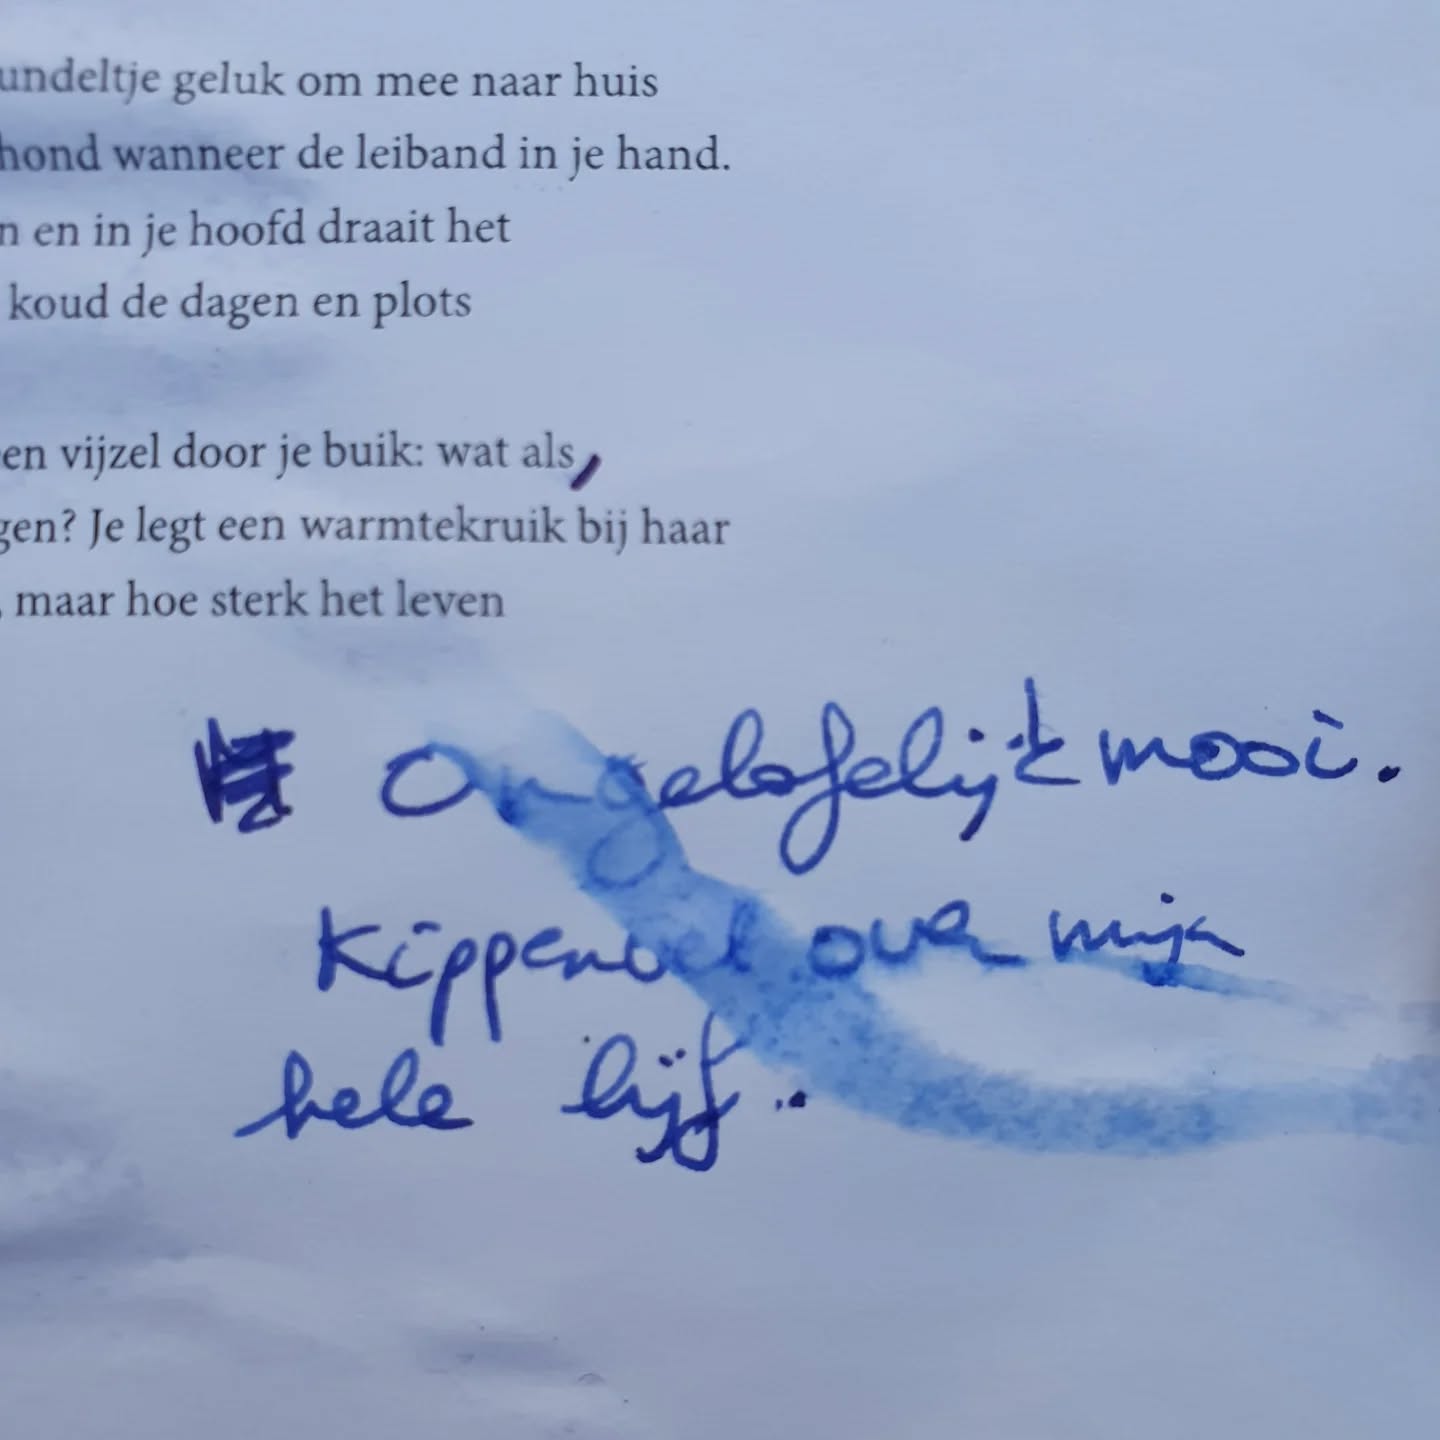 undeltje geluk om mee naar huis
hond wanneer de leiband in je hand.
n en in je hoofd draait het
koud de dagen en plots
en vijzel door je buik: wat als,
gen? Je legt een warmtekruik bij haar
, maar hoe sterk het leven
Ongelofelijk mooi.
Kippenvel over mijn
hele lijf.